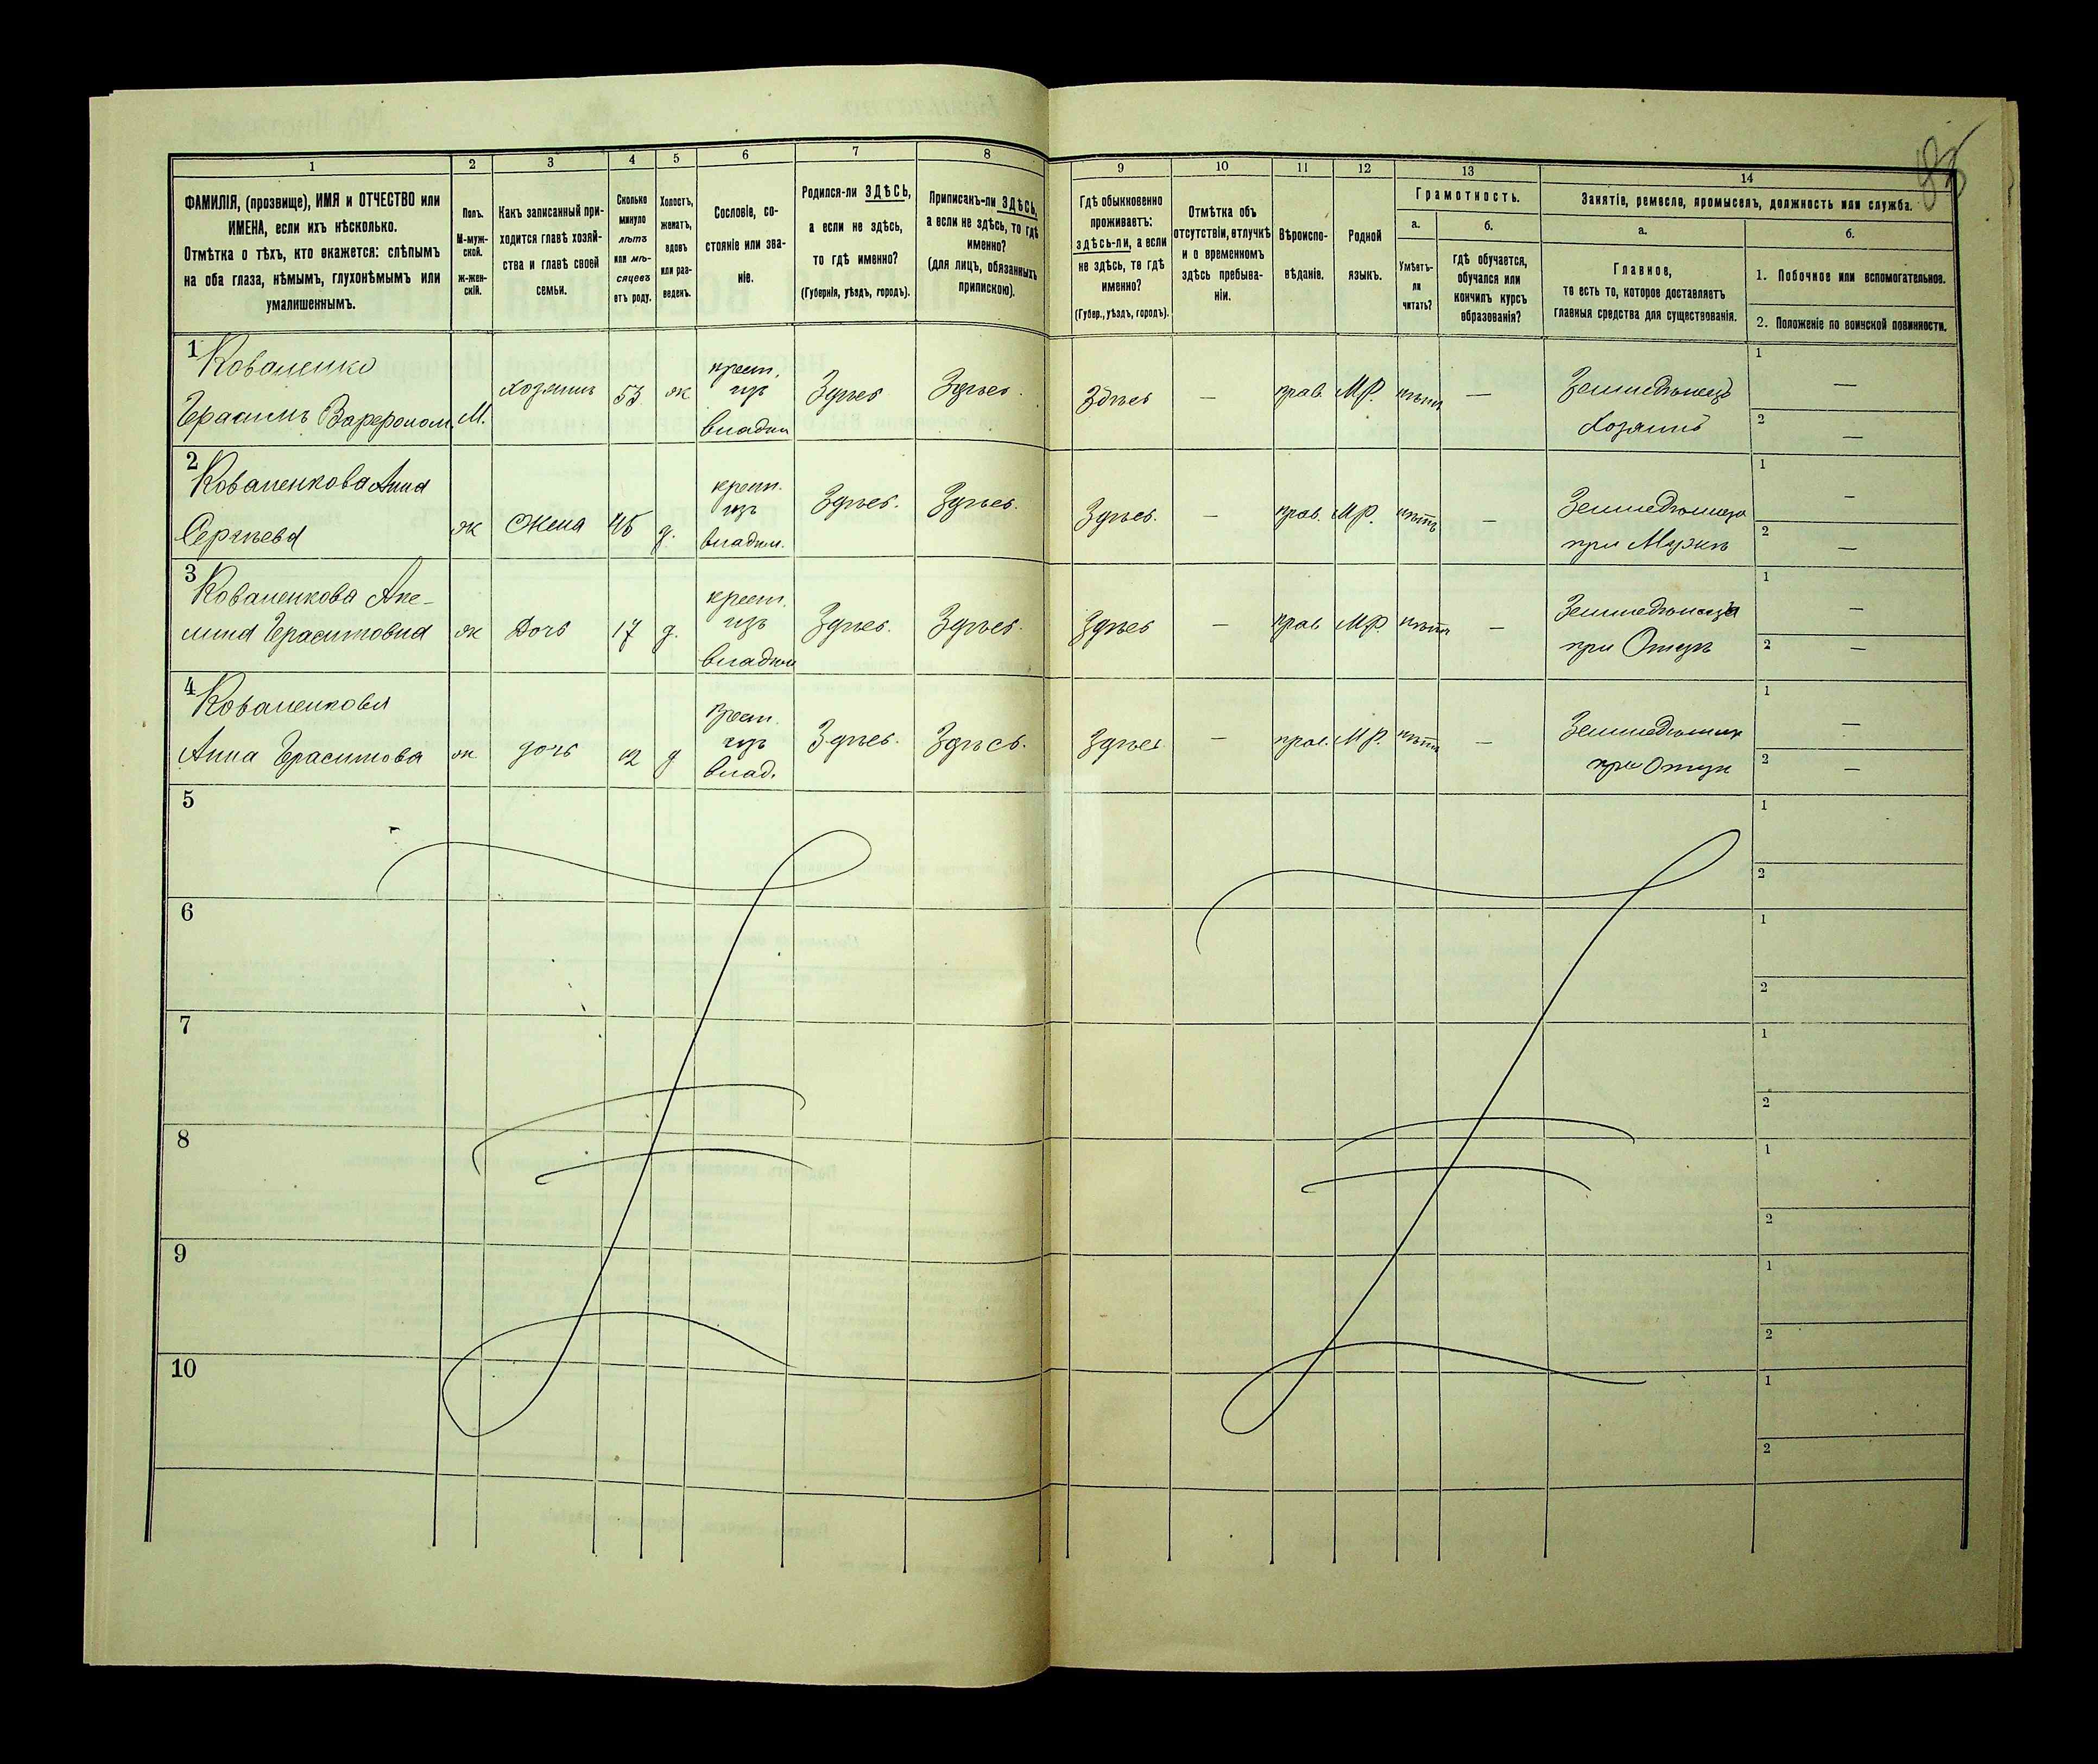 85
1 2 3 4 5 6 7 8 9 10 11 12 13 14
ФАМИЛІЯ, (прозвище), ИМЯ и ОТЧЕСТВО или
ИМЕНА, если ихъ нѣсколько.
Отмѣтка о тѣхъ, кто окажется: слѣпымъ
на оба глаза, нѣмымъ, глухонѣмымъ или
умалишеннымъ.
Полъ.
М-муж-
ской.
Ж-жен-
скій.
Какъ записанный при-
ходится главѣ хозяй-
ства и главѣ своей
семьи.
Сколько
минуло
лѣтъ
или мѣ-
сяцевъ
отъ роду.
Холостъ,
женатъ,
вдовъ
или раз-
веденъ.
Сословіе, со-
стояніе или зва-
ніе.
Родился-ли ЗДѢСЬ,
а если не здѣсь,
то гдѣ именно?
(Губернія, уѣздъ, городъ).
Приписанъ-ли ЗДѢСЬ,
а если не здѣсь, то гдѣ
именно?
(для лицъ, обязанныхъ
припискою).
Гдѣ обыкновенно
проживаетъ:
здѣсь-ли, а если
не здѣсь, то гдѣ
именно?
(Губер., уѣздъ, городъ).
Отмѣтка объ
отсутствіи, отлучкѣ
и о временномъ
здѣсь пребыва-
ніи.
Вѣроиспо-
вѣданіе.
Родной
языкъ.
Грамотность.
а.
Умѣетъ-
ли
читать?
б.
гдѣ обучается,
обучался или
кончилъ курсъ
образованія?
Занятіе, ремесло, промыселъ, должность или служба.
а.
Главное,
то есть то, которое доставляетъ
главныя средства для существованія.
б.
1. Побочное или вспомогательное.
2. Положеніе по воинской повинности.
1 Коваленко
Герасимъ М. хозяинъ 53 ж крест. изъ владѣл Здѣсь Здѣсь. Здѣсь — прав. МР. нѣтъ — Земледѣлецъ 1 —
Хозяинъ 2 —
2 Коваленкова Анна
Сергѣева ж Жена 45 д. крест. изъ владѣл. Здѣсь. Здѣсь. Здѣсь. — прав. МР. нѣтъ — Земледѣлица 1 —
при Мужѣ 2 —
3 Коваленкова Аке-
лина Герасимовна ж Дочь 17 д. крест. изъ владѣл Здѣсь. Здѣсь. Здѣсь — прав МР. нѣтъ — Земледѣлица 1 —
при Отцѣ 2 —
4 Коваленкова
Анна Герасимова ж дочь 12 д крест. изъ влад. Здѣсь. Здѣсь. Здѣсь — прав. МР. нѣтъ — 1 —
при Отцѣ 2 —
5 1
2
6 1
2
7 1
2
8 1
2
9 1
2
10 1
2